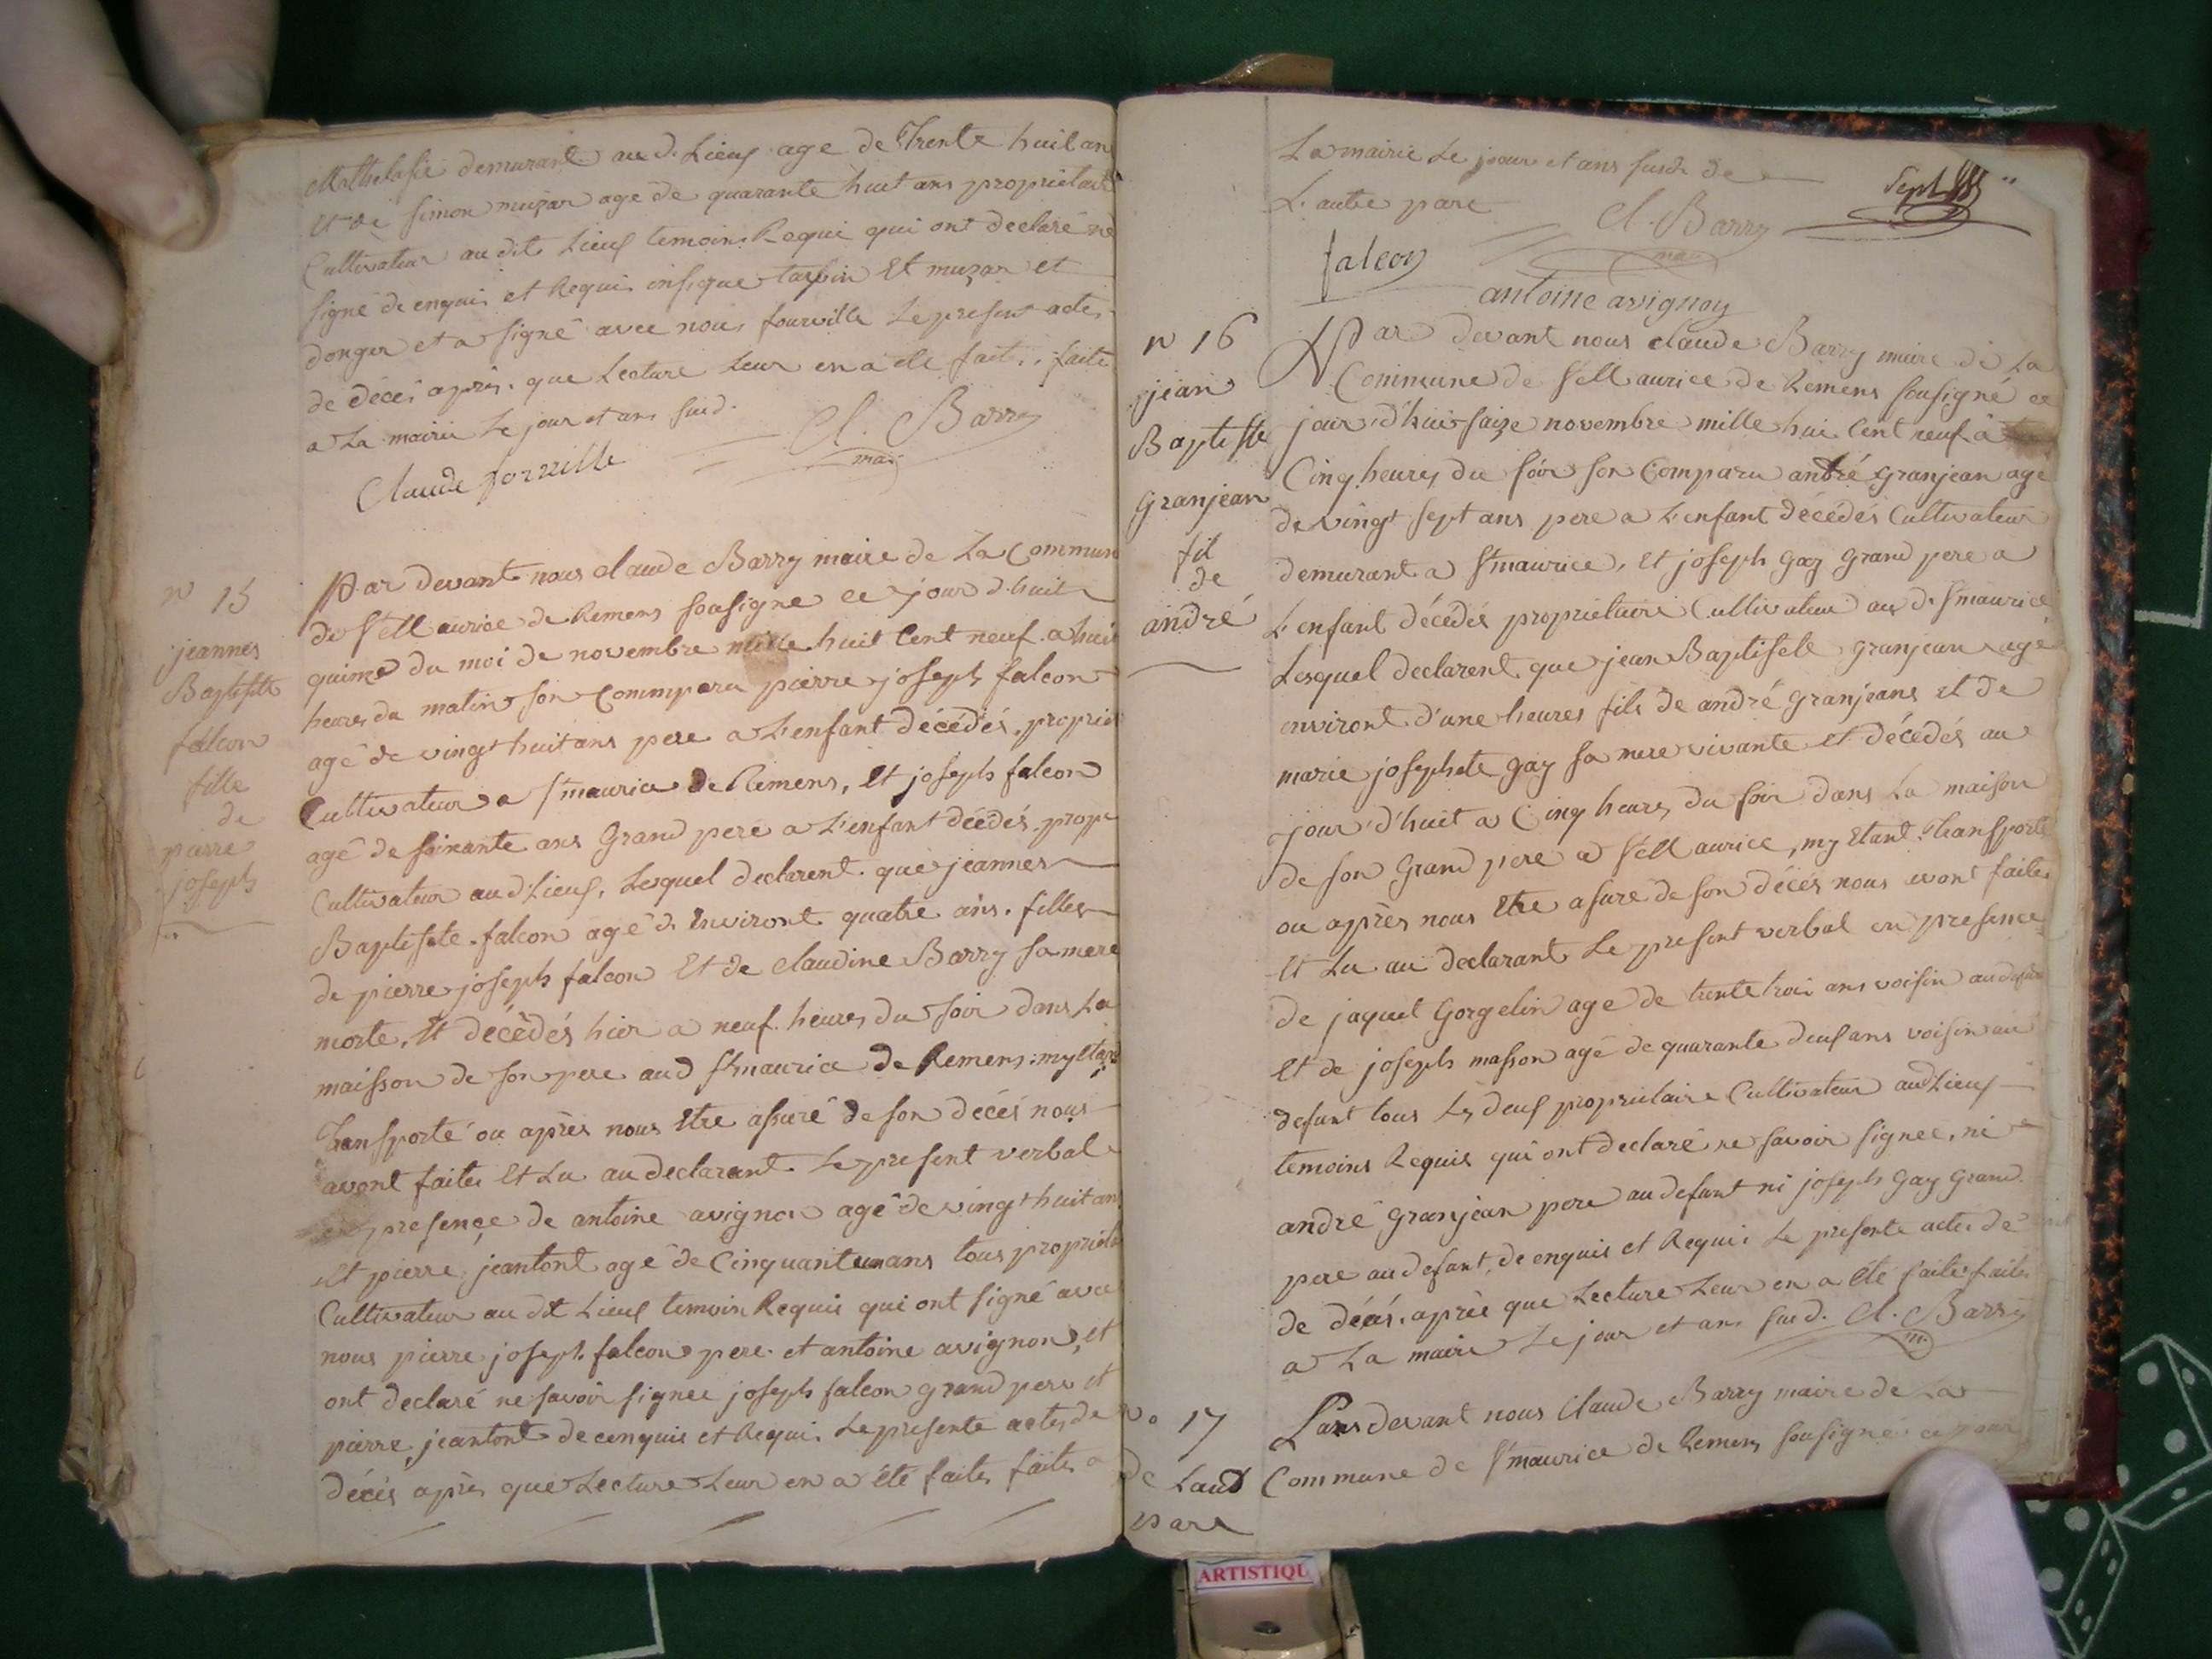 Mathelasie demurant au d. Lieuf age de Trente huit an
Et de simon muzar age de quarante huit ans proprietaire
Cultivateur au dit Lieuf temoins Requi qui ont declaré ne
signé de enquis et Requis insigne tarpin Et muzar et
donger et a signé avec nous fourville Le present actes
de décés après que Lecture Leur en a ete fait. faite
a La mairie Le jour et ans susd.
Cl. Barry
mai
Claude forville
n 15
jeannes
Baptiste
falcon
fille
de
pierre
joseph
Par devant nous claude Barry maire de La Commun
de St Maurice de Remens sousigne ce jour d'huit
quime du moi de novembre mille huit Cent neuf a huit
heures du matin son Commparu pierre joseph falcon
agé de vingt huit ans pere a L'enfant décédés, proprie
Cultivateur a St maurice de Remens, Et joseph falcon
agé de soixante ans Grand pere a L'enfant décédés prop
Cultivateur au d Lieuf, Lesquel declarent que jeannes
Baptiste falcon agé d. Environt quatre ans. filles
de pierre joseph falcon Et de claudine Barry sa mere
morte, Et décèdés hier a neuf heures du soir dans La
maisson de son pere au d St maurice de Remens: my Etans
Transporté ou après nous Etre assuré de son decés nous
avont faites Et Lu au declarant Le present verbal
en presençe de antoine avignon agé de vingt huit an
Et pierre jeantont agé de Cinquante un ans tous propriet
Cultivateur au dt Lieuf temoin Requis qui ont signé avec
nous pierre joseph falcon pere et antoine avignon, et
ont declaré ne savoir signee joseph falcon grand pere et
pierre jeantont de cenquis et Requi. Le presente actes de
décés après que Lecture Leur en a été faites faites a
La mairie Le jour et ans susd. de
L'autre part
Sept
Cl. Barry
mai
falcon
antoine avignon
n 16
jean
Baptiste
granjean
fil
de
andré
Par devant nous claude Barry maire de La
Commune de St Maurice de Remens sousigné ce
jour d'hui saize novembre mille hui Cent neuf a
Cinq heures du soir son Comparu andré granjean age
de vingt sept ans pere a L'enfant décédés Cultivateur
demurant a St maurice, Et joseph gay grand pere a
L'enfant décédés proprietaire Cultivateur au d. St maurice
Lesquel declarent que jean Baptiste granjean agé
environt d'une heures fils de andré granjeans et de
marie josephte gay sa mere vivante et décédés au
jour d'huit a Cinq heures du soir dans La maison
de son Grand pere a St Maurice, my Etant Transporte
ou après nous Etre asuré de son décés nous avont faites
Et Lu au declarant Le present verbal en presence
de jaquet Gorgelin age de trente troi ans voisin au defunt
Et de joseph masson agé de quarante deuf ans voisin au
defunt tous Les deuf proprietaire Cultivateur aud Lieuf
temoins Requis qui ont declaré ne savoir signee, ni
andré granjean pere au defunt ni joseph gay Grand
pere au defunt, de enquis et Requi Le presente actes de
de décés. après que Lecture Leur en a été faite faites
a La mairie Le jour et ans susd. Cl. Barry
m.
No 17
de Laut
part
Pars devant nous Claude Barry maire de La
Commune de St maurice de Remens sousigné ce jour
ARTISTIQU